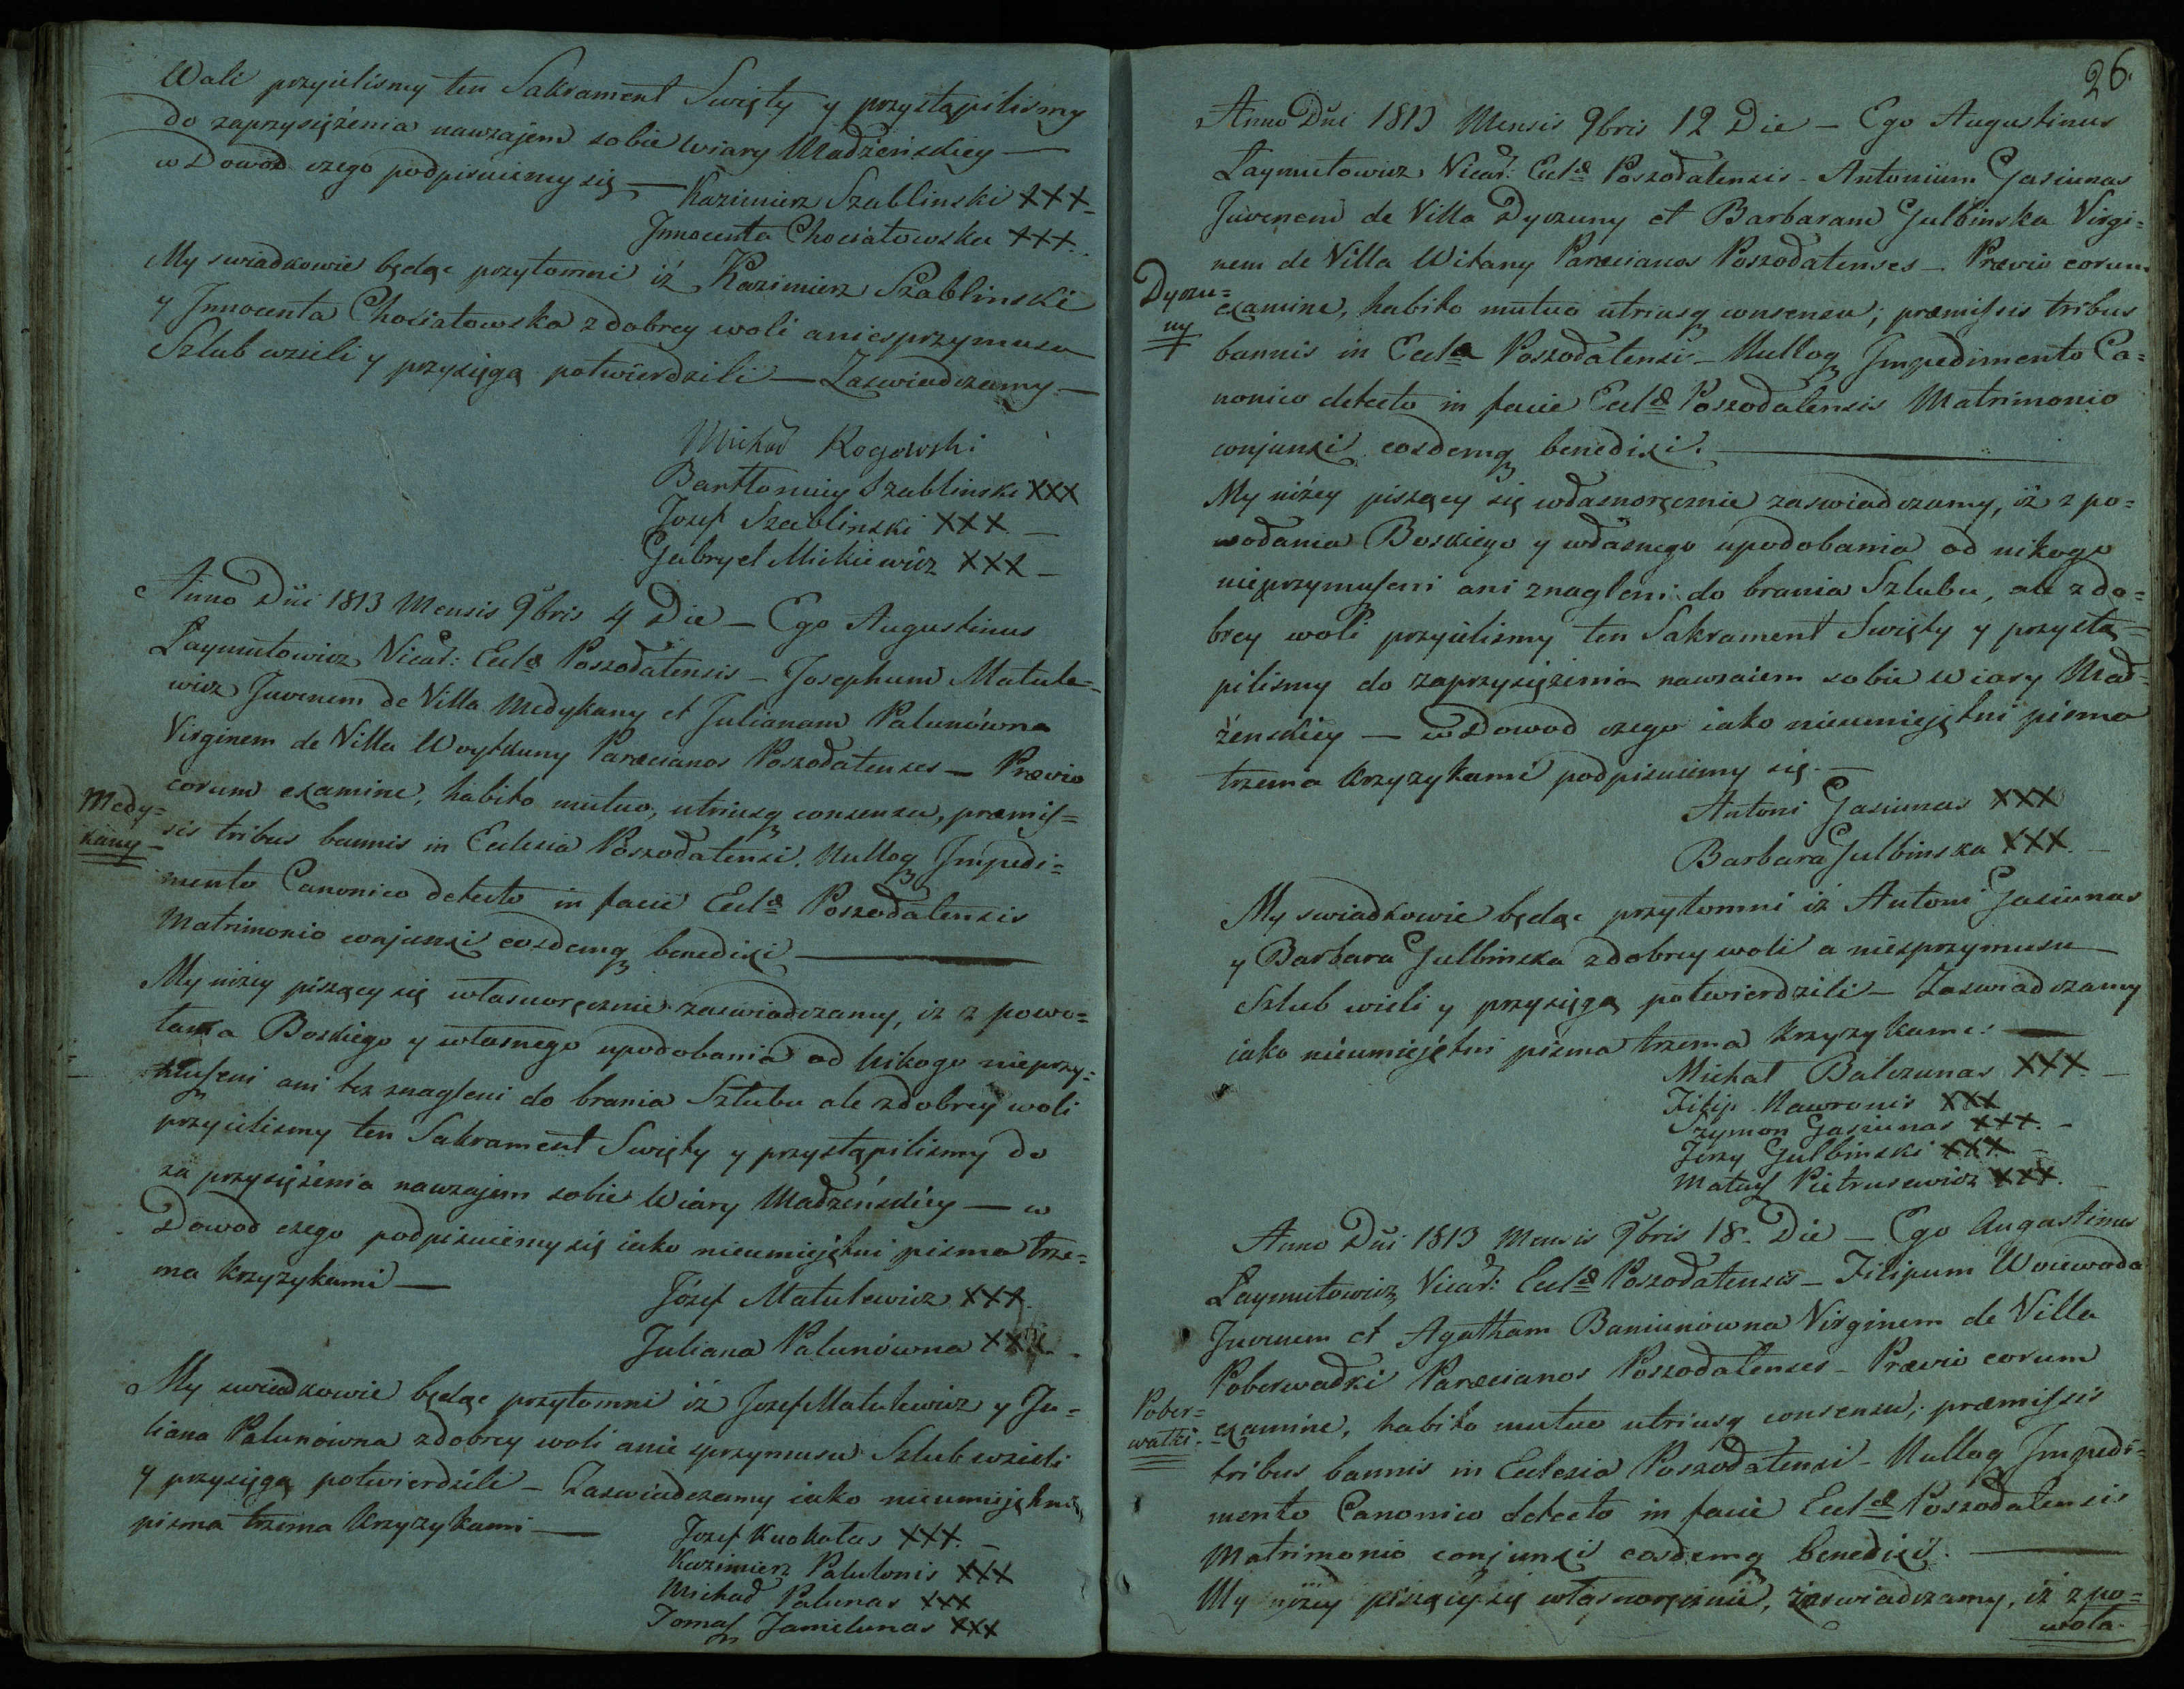 Wali przyieliśmy ten Sakrament Swięty y przystąpiliśmy
do zaprzysiężenia nawzajem sobie wiary Madżeńskiey —
w Dowod czego podpisuiemy się — Kazimierz Szablinski XXX
Jnnocenta Chociatowska XXX
My swiadkowie będąc przytomni iż Kazimierz Szablinski
y Jnnocenta Chociatowska z dobrey woli a niesprzymusu
Szlub wzieli y przysięgą potwierdzili — Zaswiadczamy —
Michał Rogowski
Barttomiey Szablinski XXX
Jozef Szablinski XXX —
Gabryel Mickiewicz XXX —
Anno Dni 1813 Mensis 9bris 4 Die — Ego Augustinus
Laymutowicz Vicar: Eclæ Poszodatensis — Josephum Matule=
wicz Juvenem de Villa Medykany et Julianam Palunówna
Virginem de Villa Woytkuny Paræcianos Poszodatenses — Prævio
eorum examine, habito mutuo, utriusq consensu, præmis=
Medy=
kany
sis tribus bannis in Eclesia Poszodatensi. Nulloq Jmpedi=
mento Canonico detecto in facie Eclæ Poszodatensis
Matrimonio conjunxi eosdemq benedixi —
My niżey piszący się własnoręcznie zaswiadczamy, iż z powo=
tania Boskiego y własnego upodobania od nikogo nieprzy=
muszeni ani tez znagleni do brania Szlubu ale z dobrey woli
przyieliśmy ten Sakrament Swięty y przystąpiliśmy do
za przysiężenia nawzajem sobie Wiary Madżeńskiey — w
Dowod czego podpisuiemy się iako nieumiejętni pisma trze=
ma krzyzykami —
Józef Matulewicz XXX.
Juliana Palunówna XXX.
My swiadkowie będąc przytomni iż Jozef Matulewicz y Ju=
liana Palunówna z dobrey woli a nie sprzymusu Szlub wzieli
y przysięgą potwierdzili — Zaswiadczamy iako nieumiejętni
pisma trzema krzyzykami —
Jozef Kuokatas XXX. —
Kazimierz Palulonis XXX
Michał Palunas XXX
Tomasz Jamielunas XXX
26.
Anno Dni 1813 Mensis 9bris 12 Die — Ego Augustinus
Laymutowicz Vicar: Eclæ Poszodatensis — Antonium Gasiunas
Juvenem de Villa Dyrzuny et Barbaram Gulbinska Virgi=
nem de Villa Witany Paræcianos Poszodatenses — Prævio eorum
Dyrzu=
ny
examine, habito mutuo utriusq consensu; præmissis tribus
bannis in Ecla Poszodatensi — Nulloq Jmpedimento Ca=
nonico detecto in facie Eclæ Poszodatensis Matrimonio
conjunxi eosdemq benedixi. —
My niżey piszący się własnoręcznie zaswiadczamy, iż z po=
wodania Boskiego y własnego upodobania od nikogo
nieprzymuszeni ani znagleni do brania Szlubu, ale z do=
brey woli przyieliśmy ten Sakrament Swięty y przystą=
piliśmy do zaprzysiężenia nawzaiem sobie wiary Mad=
żenskiey — w Dowod czego iako nieumiejętni pisma
trzema krzyzykami podpisuiemy się. —
Antoni Gasiunas XXX
Barbara Gulbinska XXX. —
My swiadkowie będąc przytomni iż Antoni Gasiunas
y Barbara Gulbinska z dobrey woli a niesprzymusu
Szlub wieli y przysięgą potwierdzili — Zaswiadczamy
iako nieumiejętni pisma trzema krzyzykami —
Michał Balczunas XXX. —
Filip Nawronis XXX
Szymon Gasiunas XXX. —
Jerzy Gulbinski XXX —
Mateusz Pietrusewicz XXX.
Anno Dni 1813 Mensis 9bris 18. Die — Ego Augustinus
Laymutowicz Vicar: Eclæ Poszodatensis — Filipum Woiewoda
Juvenem et Agatham Baniunówna Virginem de Villa
Poberwadki Paræcianos Poszodatenses — Prævio eorum
Pober=
watki.
examine, habito mutuo utriusq consensu; præmissis
tribus bannis in Eclesia Poszodatensi — Nulloq Jmpedi=
mento Canonico detecto in facie Eclæ Poszodatensis
Matrimonio conjunxi eosdemq benedixi. —
My niżey piszący się własnoręcznie, zaswiadczamy, iż z po=
woła.